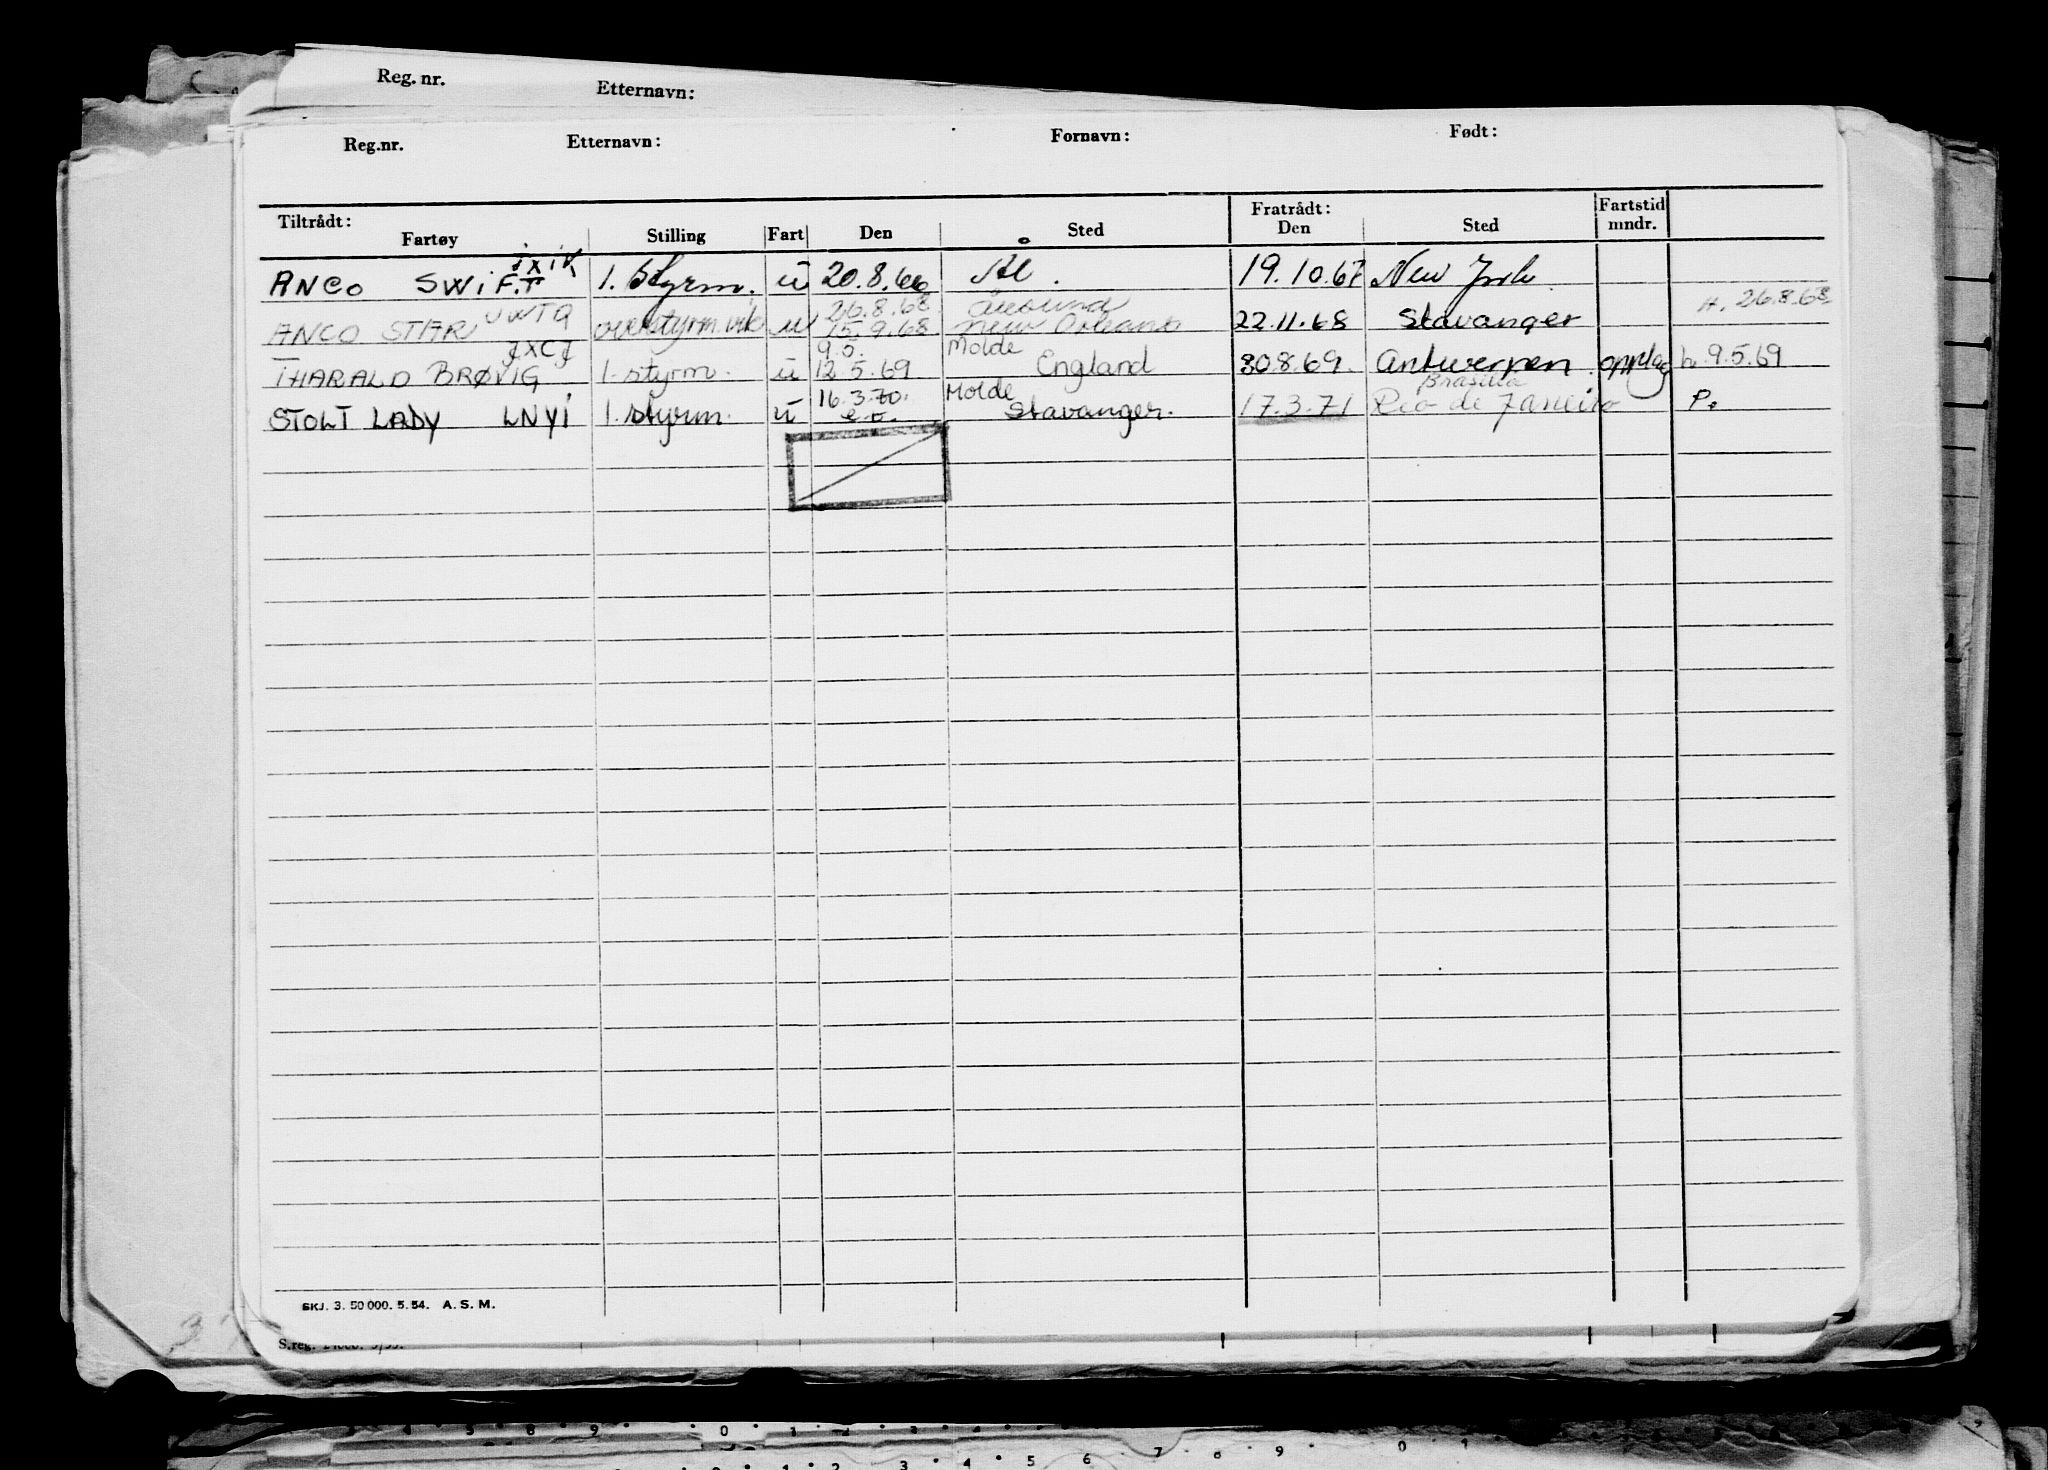 Reg. nr. Etternavn:
Reg.nr. Etternavn: Fornavn: Født:
Tiltrådt: Fratrådt: Fartstid
Fartøy Stilling Fart Den Sted Den Sted mndr.
JXIK
ANCO SWIFT 1. Styrm. u 20.8.66 Ål. 19.10.67 New York
JWTQ 26.8.68 Ålesund H. 26.8.68
ANCO STAR overstyrm.vik u 15.9.68 New Orleans 22.11.68 Stavanger
JXCJ 9.5. Molde
THARALD BRØVIG 1. styrm. u 12.5.69 England 30.8.69. Antwerpen. opplag h. 9.5.69
16.3.70. Molde Brasilia
STOLT LADY LNYI 1. styrm. u e.o. Stavanger. 17.3.71 Rio de Janeiro P.
SKJ. 3. 50 000. 5. 54. A. S. M.
S.reg.